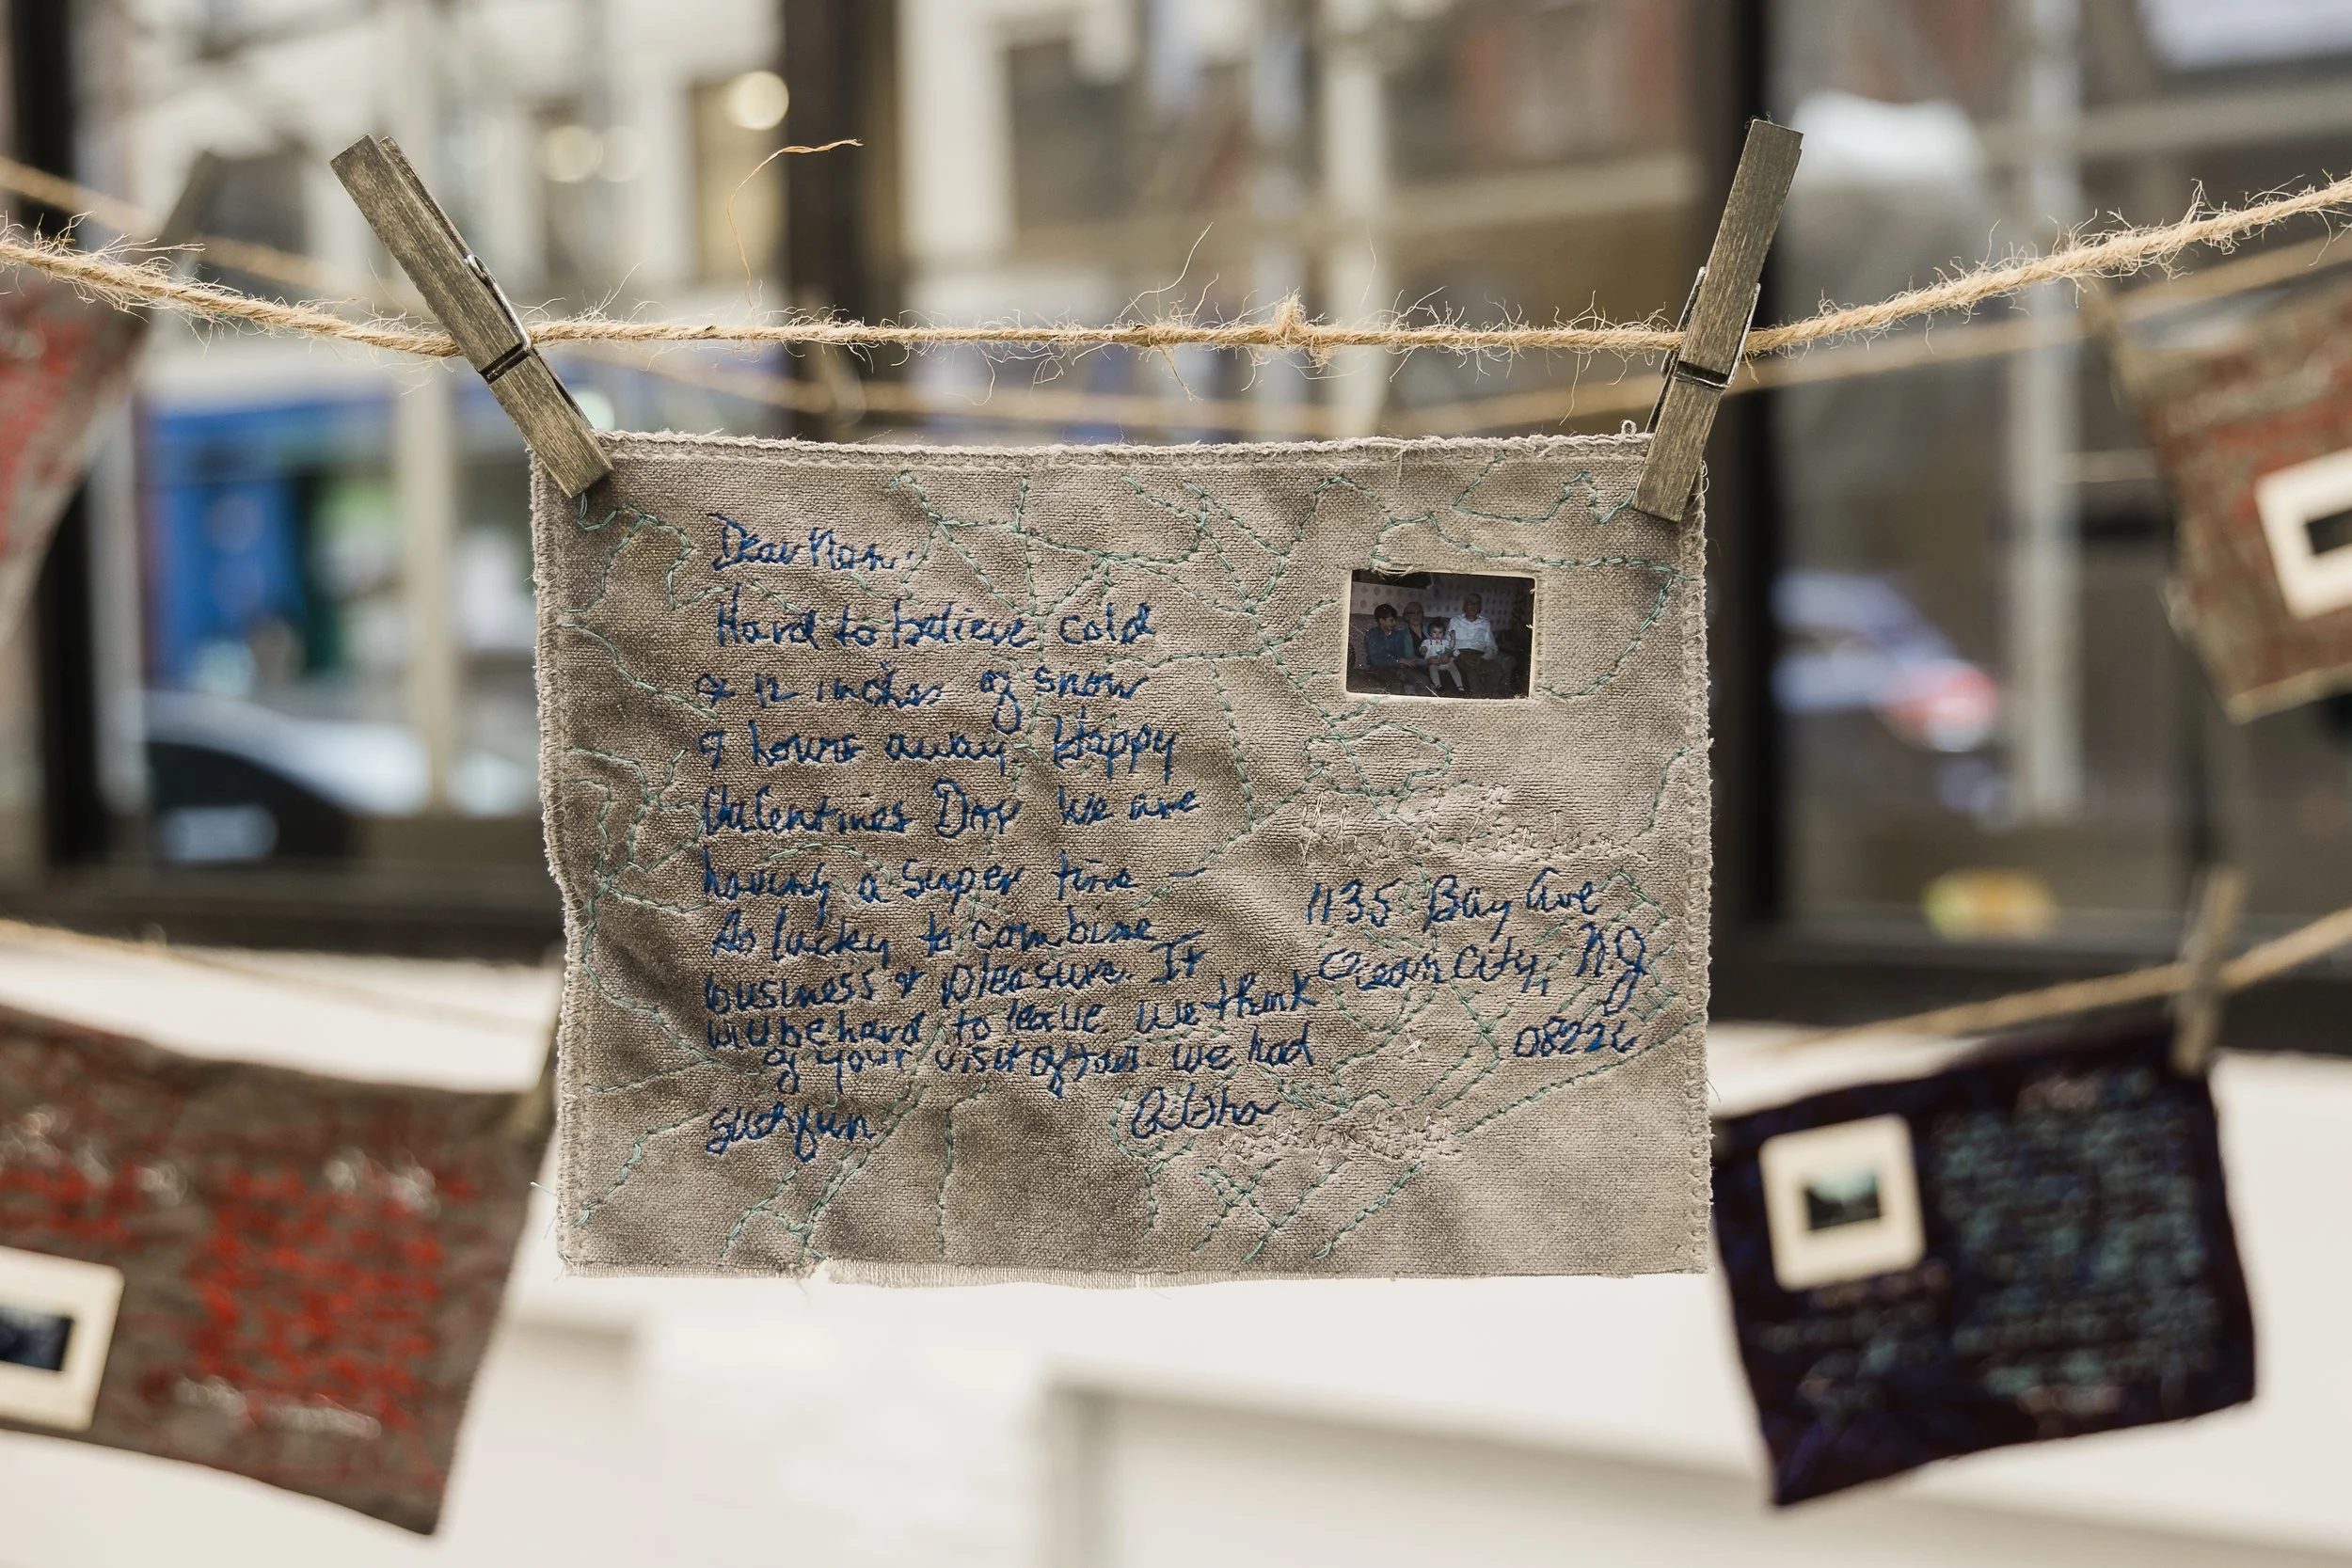 Dear Mom,
Hard to believe cold
& 12 inches of snow
9 hours away. Happy
Valentines Day We are
having a super time —
So lucky to combine
business & pleasure. It
will be hard to leave. We think
of your visit often. We had
such fun.
1135 Bay Ave
Ocean City, NJ
08226